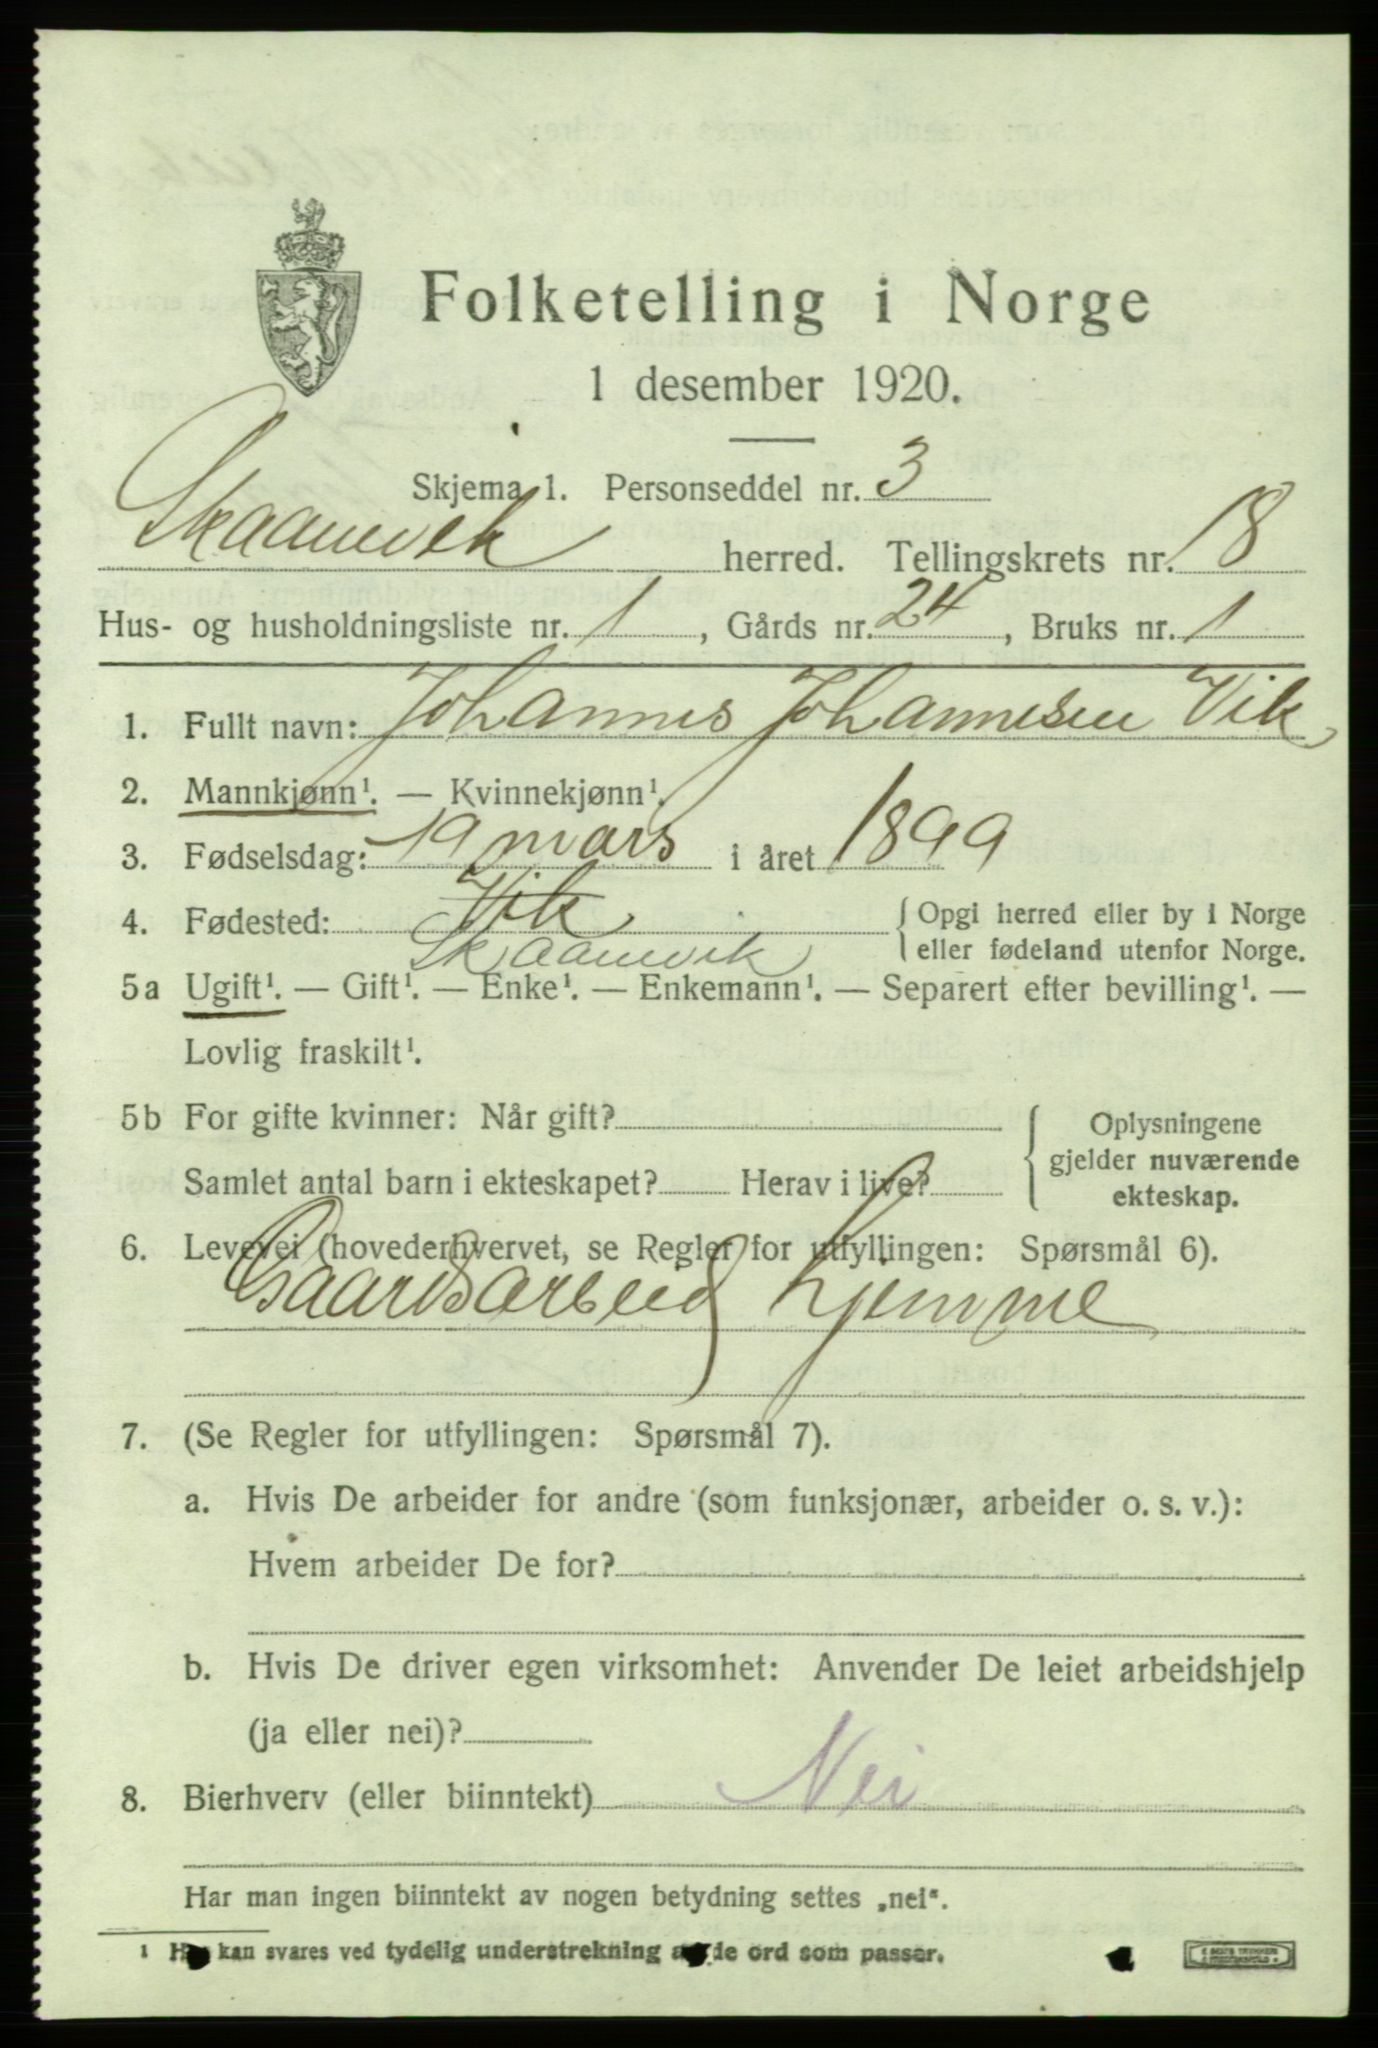 Folketelling i Norge
1 desember 1920.
Skjema 1. Personseddel nr. 3
Skaanevik herred. Tellingskrets nr. 18
Hus- og husholdningsliste nr. 1, Gårds nr. 24, Bruks nr. 1
1. Fullt navn: Johannes Johannesen Vik
2. Mannkjønn¹. — Kvinnekjønn¹.
3. Fødselsdag: 19 mars i året 1899
4. Fødested: Vik Opgi herred eller by i Norge
Skaanevik eller fødeland utenfor Norge.
5a Ugift¹. — Gift¹. — Enke¹. — Enkemann¹. — Separert efter bevilling¹. —
Lovlig fraskilt¹.
5b For gifte kvinner: Når gift? Oplysningene
gjelder nuværende
Samlet antal barn i ekteskapet? Herav i live? ekteskap.
6. Levevei (hovederhvervet, se Regler for utfyllingen: Spørsmål 6).
Gaardsarbeid hjemme
7. (Se Regler for utfyllingen: Spørsmål 7).
a. Hvis De arbeider for andre (som funksjonær, arbeider o. s. v.):
Hvem arbeider De for?
b. Hvis De driver egen virksomhet: Anvender De leiet arbeidshjelp
(ja eller nei)?
8. Bierhverv (eller biinntekt) Nei
Har man ingen biinntekt av nogen betydning settes „nei“.
¹ Her kan svares ved tydelig understrekning av de ord som passer.